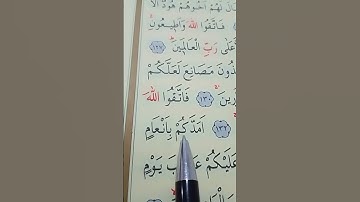 قَالَ لَهُمْ اَخُوهُمْ هُودٌ اَلَا
فَاتَّقُوا اللهَ وَاَطِيعُونِ
عَلٰى رَبِّ الْعَالَمِينَ ﴿١٢٧﴾
ـذُونَ مَصَانِعَ لَعَلَّكُمْ
ـرِينَ ﴿١٣٠﴾ فَاتَّقُوا اللهَ
﴿١٣٢﴾ اَمَدَّكُمْ بِاَنْعَامٍ
عَلَيْكُمْ عَذَابَ يَوْمٍ